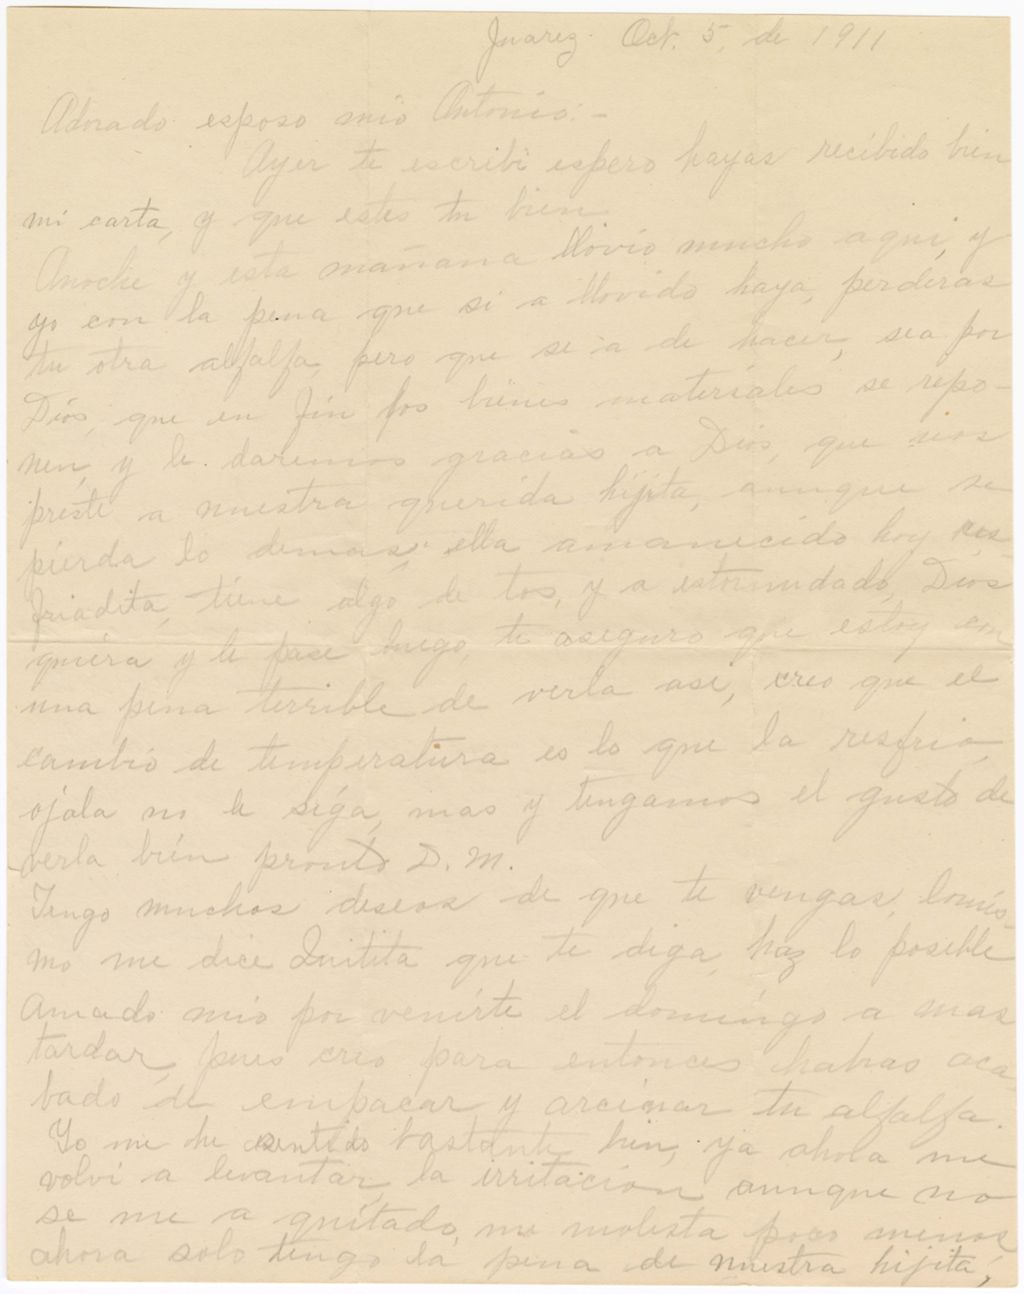 Juarez Oct. 5, de 1911
Adorado esposo mio Antonio:-
Ayer te escribi espero hayas recibido bien
mi carta, y que estes tu bien
Anoche y esta mañana llovio mucho aqui, y
yo con la pena que si a llovido haya, perderas
tu otra alfalfa pero que se a de hacer, sea por
Diós, que en fin los bienes materiales se repo-
nen, y le daremos gracias a Diós, que nos
preste a nuestra querida hijita, aunque se
pierda lo demas, ella amanecido hoy res-
friadita, tiene algo de tos, y a estornudado, Dios
quiera y le pase luego, te aseguro que estoy con
una pena terrible de verla asi, creo que el
cambio de temperatura es lo que la resfrio,
ojala no le siga, mas y tengamos el gusto de
verla bien pronto D. M.
Tengo muchos deseos de que te vengas, lomis-
mo me dice Quitita que te diga, haz lo posible
Amado mio por venirte el domingo a mas
tardar, pues creo para entonces habras aca-
bado de empacar y arcinar tu alfalfa.
Yo me he sentido bastante bien, ya ahora me
volvi a levantar, la irritacion aunque no
se me a quitado, me molesta poco menos
ahora solo tengo la pena de nuestra hijita,